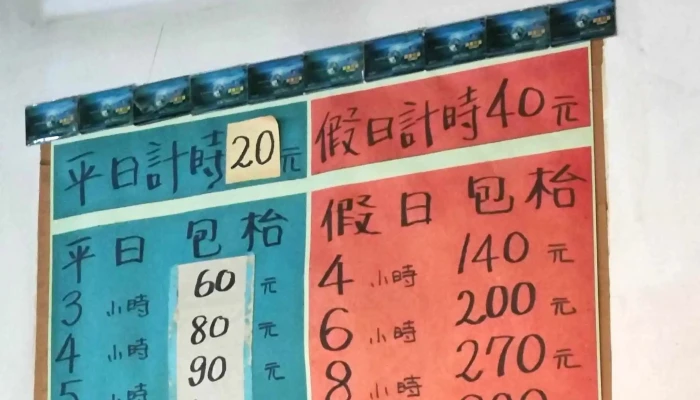 平日計時20元
假日計時40元
平日包枱
3小時60元
4小時80元
5小時90元
假日包枱
4小時140元
6小時200元
8小時270元